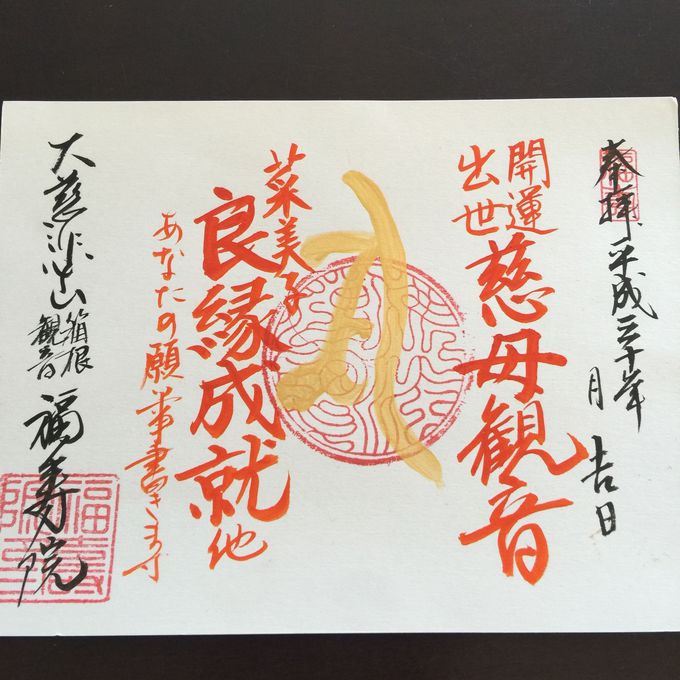 奉拝 平成三十年 月 吉日
開運
出世
慈母観音
菜美子
良縁成就 他
あなたの願事書きます
大慈悲山 箱根
観音 福寿院